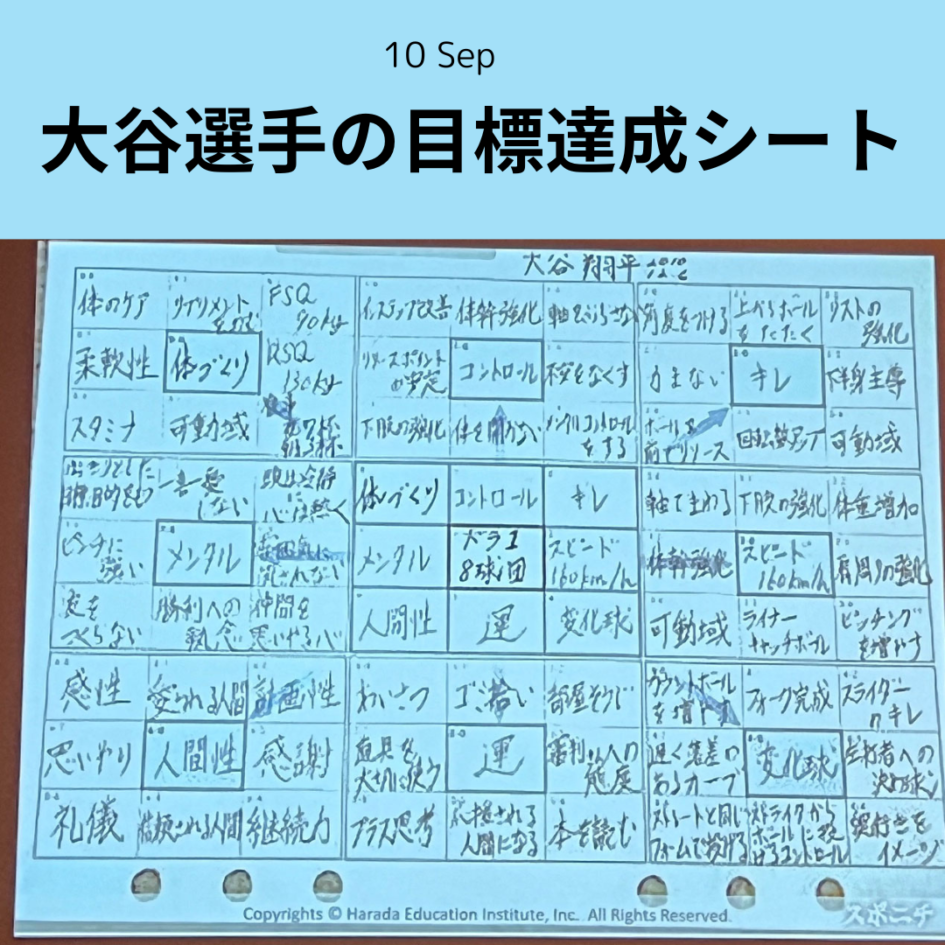 10 Sep
大谷選手の目標達成シート
大谷 翔平
体のケア サプリメントをのむ FSQ 90kg インステップ改善 体幹強化 軸をぶらさない 角度をつける 上からボールをたたく リストの強化
柔軟性 体づくり RSQ 130kg リリースポイントの安定 コントロール 不安をなくす 力まない キレ 下半身主導
スタミナ 可動域 下肢の強化 体を開かない メンタルコントロールをする ボールを前でリリース 回転数アップ 可動域
一喜一憂しない 頭は冷静に心は熱く 体づくり コントロール キレ 軸でまわる 下肢の強化 体重増加
ピンチに強い メンタル 雰囲気に流されない メンタル ドラ1 8球団 スピード 160km/h 体幹強化 スピード 160km/h 肩周りの強化
波をつくらない 勝利への執念 仲間を思いやる心 人間性 運 変化球 可動域 ライナーキャッチボール ピッチングを増やす
感性 愛される人間 計画性 あいさつ ゴミ拾い 部屋そうじ カウントボールを増やす フォーク完成 スライダーのキレ
思いやり 人間性 感謝 道具を大切に使う 運 審判さんへの態度 遅く落差のあるカーブ 変化球 左打者への決め球
礼儀 信頼される人間 継続力 プラス思考 応援される人間になる 本を読む ストレートと同じフォームで投げる ストライクからボールに投げるコントロール 奥行きをイメージ
Copyrights © Harada Education Institute, Inc. All Rights Reserved.
スポニチ